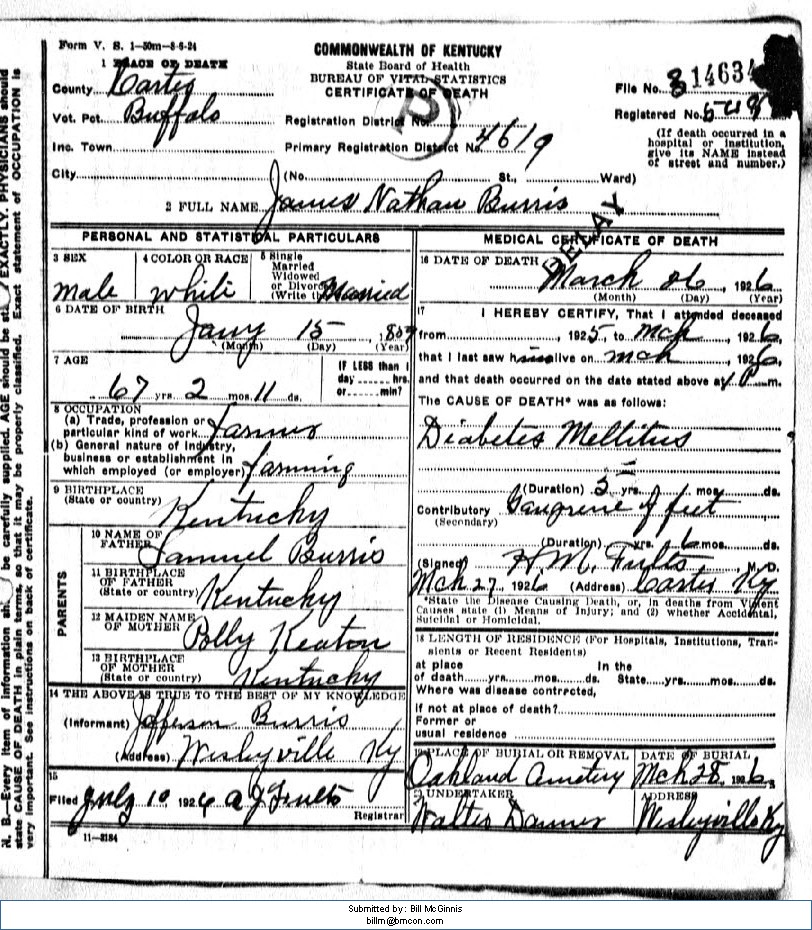 Form V. S. 1-50m-8-6-24
COMMONWEALTH OF KENTUCKY
State Board of Health
BUREAU OF VITAL STATISTICS
CERTIFICATE OF DEATH
1 PLACE OF DEATH
County Carter
Vot. Pct. Buffalo
Inc. Town
City (No. St., Ward)
File No. 14634
Registered No.
Registration District No.
Primary Registration District No. 4619
(If death occurred in a hospital or institution, give its NAME instead of street and number.)
2 FULL NAME James Nathan Burris
DELAY
PERSONAL AND STATISTICAL PARTICULARS
3 SEX
male
4 COLOR OR RACE
white
5 Single
Married
Widowed
or Divorced
(Write the
Married
6 DATE OF BIRTH
Jany 15
(Month) (Day) (Year)
7 AGE
67 yrs. 2 mos. 11 ds.
IF LESS than 1
day ...... hrs.
or ...... min?
8 OCCUPATION
(a) Trade, profession or
particular kind of work farmer
(b) General nature of industry,
business or establishment in
which employed (or employer) farming
9 BIRTHPLACE
(State or country)
Kentucky
PARENTS
10 NAME OF
FATHER Samuel Burris
11 BIRTHPLACE
OF FATHER
(State or country) Kentucky
12 MAIDEN NAME
OF MOTHER Polly Keaton
13 BIRTHPLACE
OF MOTHER
(State or country) Kentucky
14 THE ABOVE IS TRUE TO THE BEST OF MY KNOWLEDGE
(Informant) Jefferson Burris
(Address) Wesleyville Ky
15
Filed July 10 1926 A J Fults
Registrar
11-3184
MEDICAL CERTIFICATE OF DEATH
16 DATE OF DEATH
March 26, 1926
(Month) (Day) (Year)
17 I HEREBY CERTIFY, That I attended deceased
from ......, 1925, to Mch, 1926,
that I last saw him alive on Mch, 1926,
and that death occurred on the date stated above at P m.
The CAUSE OF DEATH* was as follows:
Diabetes Mellitus
(Duration) 5 yrs. mos. ds.
Contributory Gangrene of feet
(Secondary)
(Duration) yrs. 6 mos. ds.
(Signed) H. M. Fults, M. D.
Mch 27, 1926 (Address) Carter Ky
*State the Disease Causing Death, or, in deaths from Violent
Causes state (1) Means of Injury; and (2) whether Accidental,
Suicidal or Homicidal.
18 LENGTH OF RESIDENCE (For Hospitals, Institutions, Tran-
sients or Recent Residents)
at place In the
of death yrs. mos. ds. State yrs. mos. ds.
Where was disease contrcted,
if not at place of death?
Former or
usual residence
19 PLACE OF BURIAL OR REMOVAL
Oakland Cemetery
DATE OF BURIAL
Mch 28, 1926
20 UNDERTAKER
Walter Danner
ADDRESS
Wesleyville Ky
N. B.—Every item of information should be carefully supplied. AGE should be stated EXACTLY. PHYSICIANS should
state CAUSE OF DEATH in plain terms, so that it may be properly classified. Exact statement of OCCUPATION is
very important. See instructions on back of certificate.
Submitted by: Bill McGinnis
billm@bmcon.com